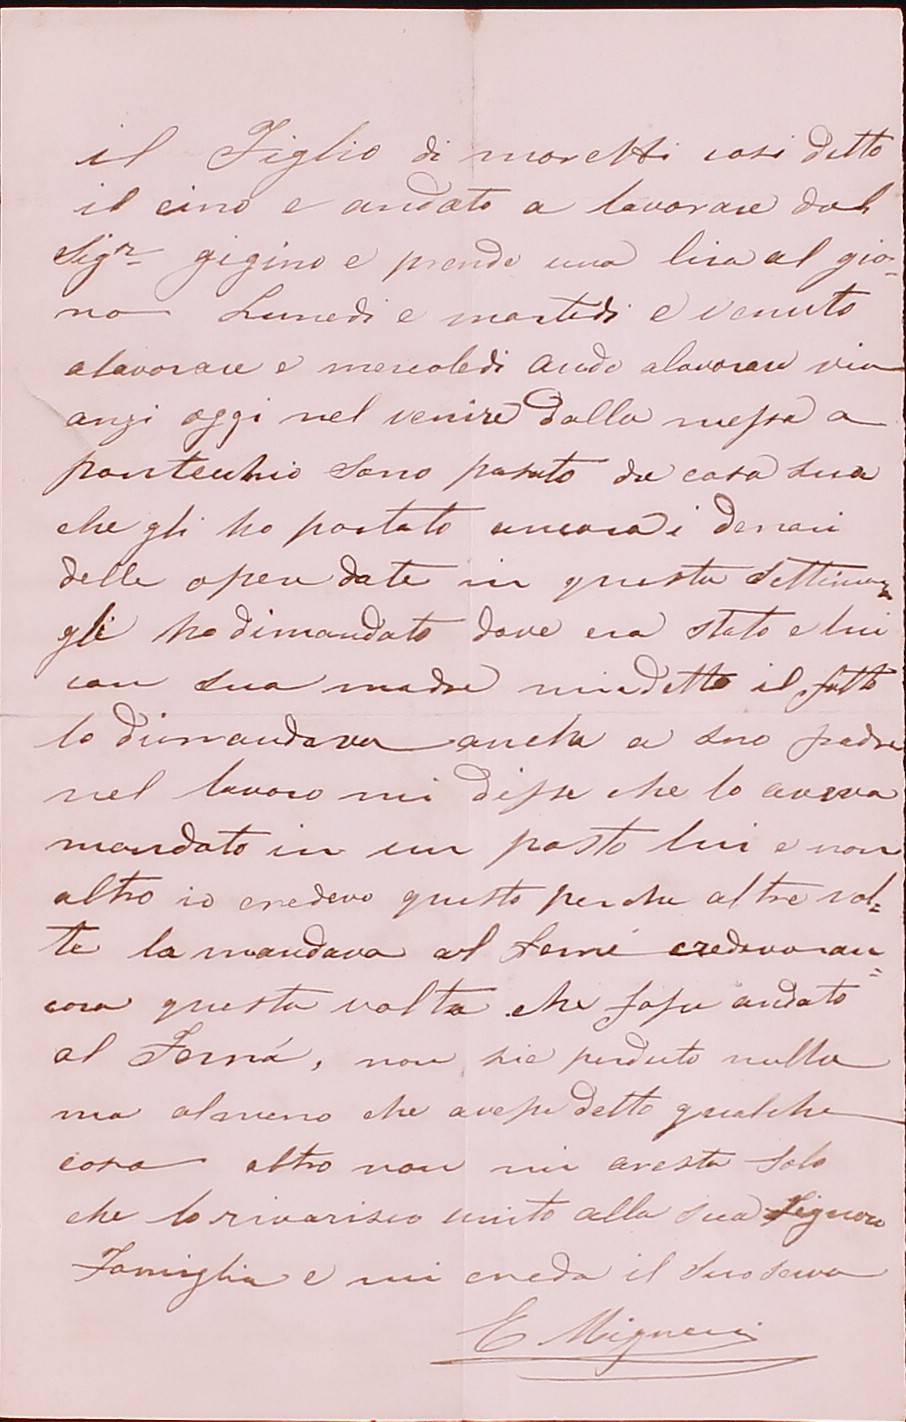 il Figlio di moretti cosi detto
il cino e andato a lavorare dal
Sigr gigino e prende una lira al gior=
no Lunedi e martedi e venuto
alavorare e mercoledi ando alavorare via
anzi oggi nel venire dalla messa a
pontecchio sono pasato da casa sua
che gli ho portato ancora i denari
delle opera date in questa Settimana
gli ho dimandato dove era stato e lui
con sua madre mi detto il fatto
lo dimandava ancha a suo padre
nel lavoro mi disse che lo aveva
mandato in un posto lui e non
altro io credevo questo percha altre vol=
te la mandava al credevo an=
cora questa volta che fosse andato
al , non sie perduto nulla
ma almeno che avesse detto qualche
cosa altro non mi aresta solo
che lo rivarisco unito alla sua Signora
Famiglia e mi creda il suo servo
E